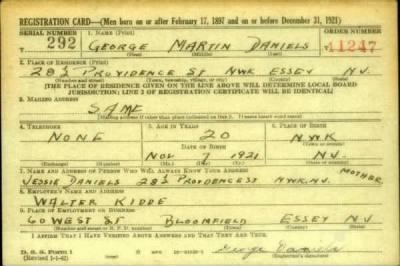 REGISTRATION CARD—(Men born on or after February 17, 1897 and on or before December 31, 1921)
SERIAL NUMBER 1. NAME (Print) ORDER NUMBER
292 GEORGE MARTIN DANIELS 11247
2. PLACE OF RESIDENCE (Print)
28½ PROVIDENCE ST NWK ESSEX N.J.
(Number and street) (Town, township, village, or city) (County) (State)
[THE PLACE OF RESIDENCE GIVEN ON THE LINE ABOVE WILL DETERMINE LOCAL BOARD
JURISDICTION; LINE 2 OF REGISTRATION CERTIFICATE WILL BE IDENTICAL]
3. MAILING ADDRESS
SAME
[Mailing address if other than place indicated on line 2. If same insert word same]
4. TELEPHONE 5. AGE IN YEARS 6. PLACE OF BIRTH
NONE 20 NWK
DATE OF BIRTH (Town or county)
NOV 7 1921 N.J.
(Exchange) (Number) (Mo.) (Day) (Yr.) (State or country)
7. NAME AND ADDRESS OF PERSON WHO WILL ALWAYS KNOW YOUR ADDRESS MOTHER
JESSIE DANIELS 28½ PROVIDENCE ST NWK, N.J.
8. EMPLOYER'S NAME AND ADDRESS
WALTER KIDDE
9. PLACE OF EMPLOYMENT OR BUSINESS
60 WEST ST BLOOMFIELD ESSEX N.J
(Number and street or R. F. D. number) (Town) (County) (State)
I AFFIRM THAT I HAVE VERIFIED ABOVE ANSWERS AND THAT THEY ARE TRUE.
D. S. S. FORM 1
(Revised 1-1-42) George Daniels